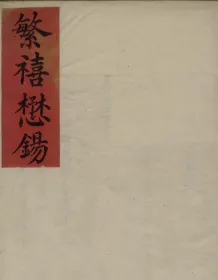 繁禧懋錫